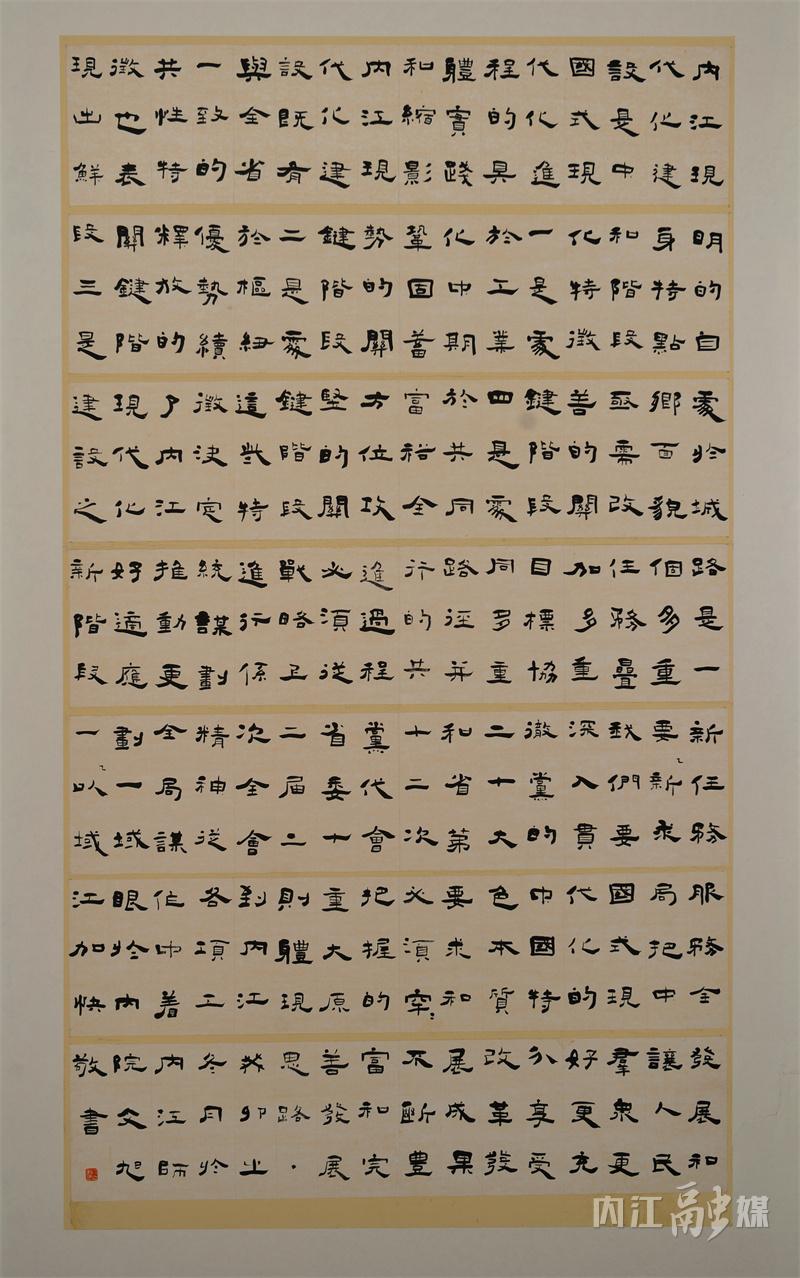 內江現
代化建
設是中
國式現
代化進
程的具
體實踐
和縮影
內江現
代化建
設既有
與全省
一致的
共性特
徵也表
現出鮮
明的自
身特點
和階段
化特徵
一是處
於工業
化中期
鞏固蓄
勢的關
鍵階段
二是處
於樞紐
優勢續
釋放的
關鍵階
段三是
處於城
鄉面貌
亟需改
善的關
鍵階段
四是處
於共同
富裕全
方位攻
堅的關
鍵階段
這些特
徵決定
了內江
現代化
建設之
路是一
個多重
任務疊
加多重
目標協
同多重
路徑并
行的共
進過程
必須從
戰略上
進行係
統謀劃
推動更
好適應
新階段
新任務
要新求
我們要
深入貫
徹黨的
二十大
和省第
十二次
黨代會
省委十
二屆二
次全會
精神從
全局謀
劃一域
一以域
服務全
局把中
國式現
代化的
中國特
色本質
要求和
必須牢
把握的
重大原
則體現
到內江
各項工
作中着
眼於內
江加快
發展和
讓人民
羣衆更
好更充
分享受
改革發
展成果
不斷豐
富和完
善發展
思路．
癸卯之
冬月於
內江師
院文旭
敬書
内江融媒